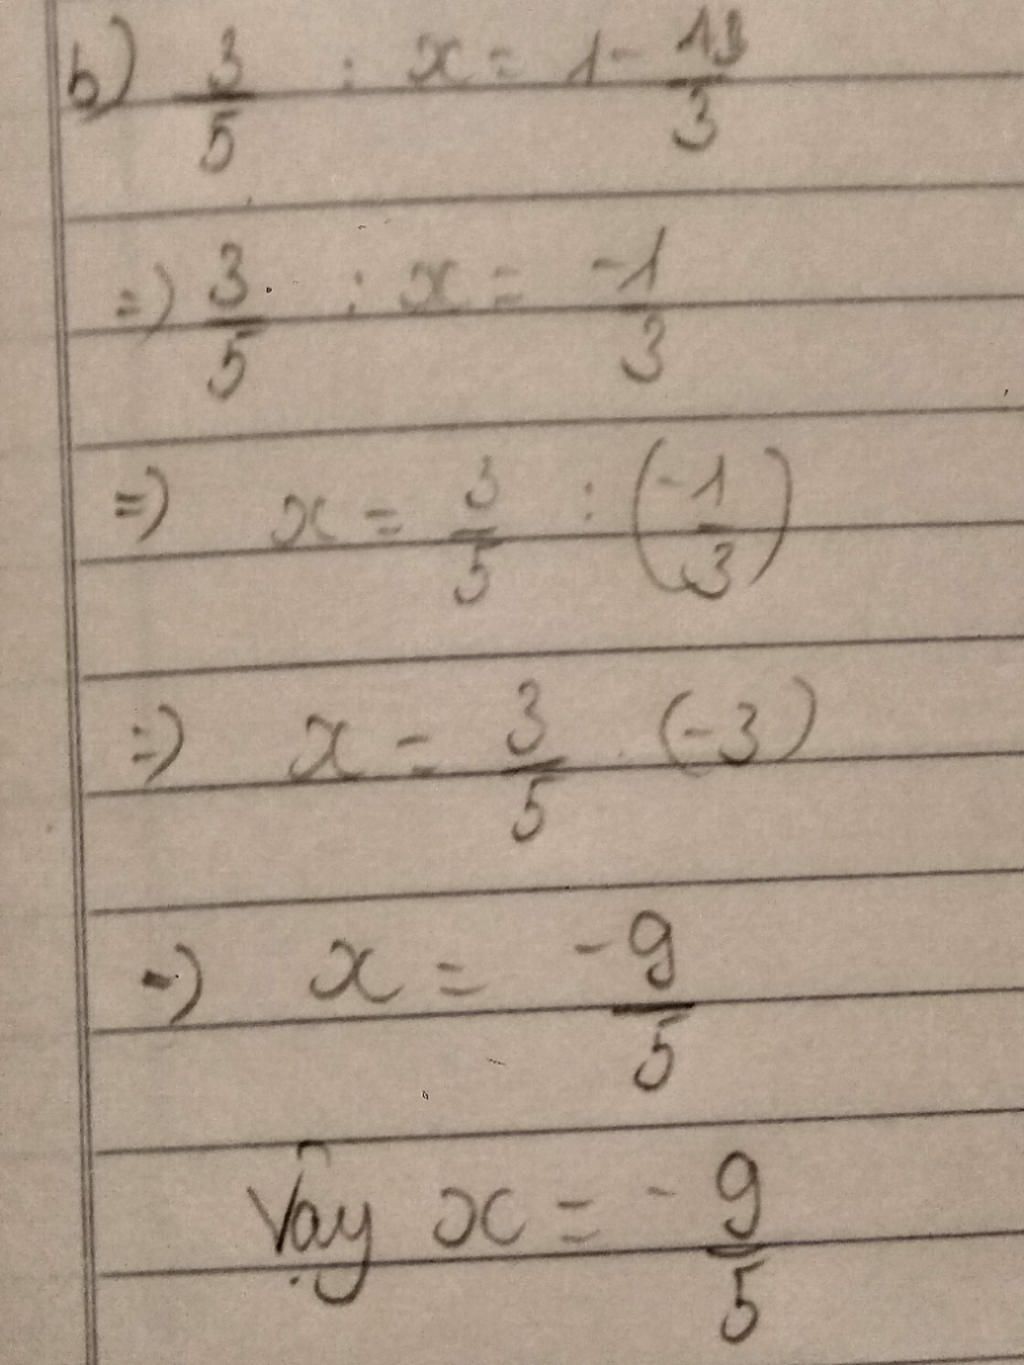 b) 3/5 : x = 1 - 13/3
=) 3/5 : x = -1/3
=) x = 3/5 : (-1/3)
=) x = 3/5 . (-3)
=) x = -9/5
Vậy x = -9/5